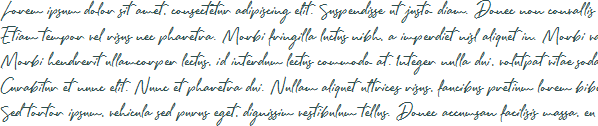 Lorem ipsum dolor sit amet, consectetur adipiscing elit. Suspendisse ut justo diam. Donec non convallis
Etiam tempor vel risus nec pharetra. Morbi fringilla luctus nibh, a imperdiet nisl aliquet in. Morbi
Morbi hendrerit ullamcorper lectus, id interdum lectus commodo at. Integer nulla dui, volutpat vitae soda
Curabitur et nunc elit. Nunc et pharetra dui. Nullam aliquet ultrices risus, faucibus pretium lorem bibe
Sed tortor ipsum, vehicula sed purus eget, dignissim vestibulum tellus. Donec accumsan facilisis massa, en